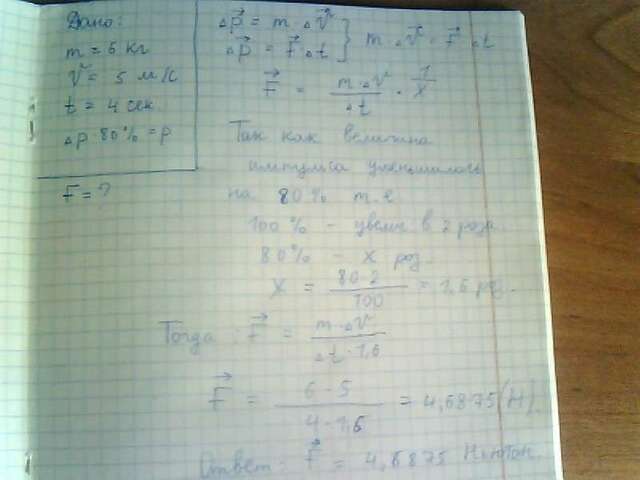 Дано:
m = 6 кг
V = 5 м/с
t = 4 сек
Δp 80% = p
F = ?
Δp⃗ = m · ΔV⃗
Δp⃗ = F⃗ · Δt } m · ΔV⃗ = F⃗ · Δt
F⃗ = m · ΔV / Δt · 1/x
Так как величина
импульса уменьшилась
на 80% т.е.
100% - увелич в 2 раза.
80% - x раз.
x = 80·2 / 100 = 1,6 раз.
Тогда: F⃗ = m · ΔV⃗ / Δt · 1,6
F⃗ = 6 · 5 / 4 · 1,6 = 4,6875 (Н).
Ответ: F⃗ = 4,6875 Ньютон.